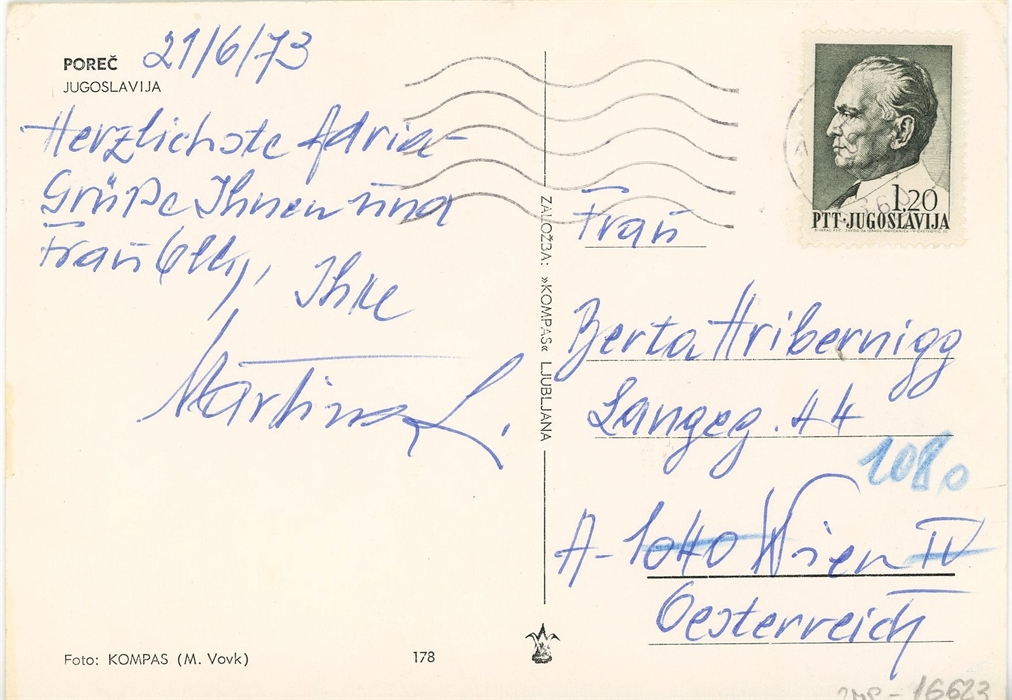 POREČ 21/6/73
JUGOSLAVIJA
Herzlichste Adria-
Grüße Ihnen und
Frau Olly, Ihre
Martina L.
Foto: KOMPAS (M. Vovk)
178
ZALOŽBA: »KOMPAS« LJUBLJANA
1.20
PTT·JUGOSLAVIJA
Frau
Berta Hribernigg
Langeg. 44
1080
A-1040 Wien IV
Oesterreich
16623